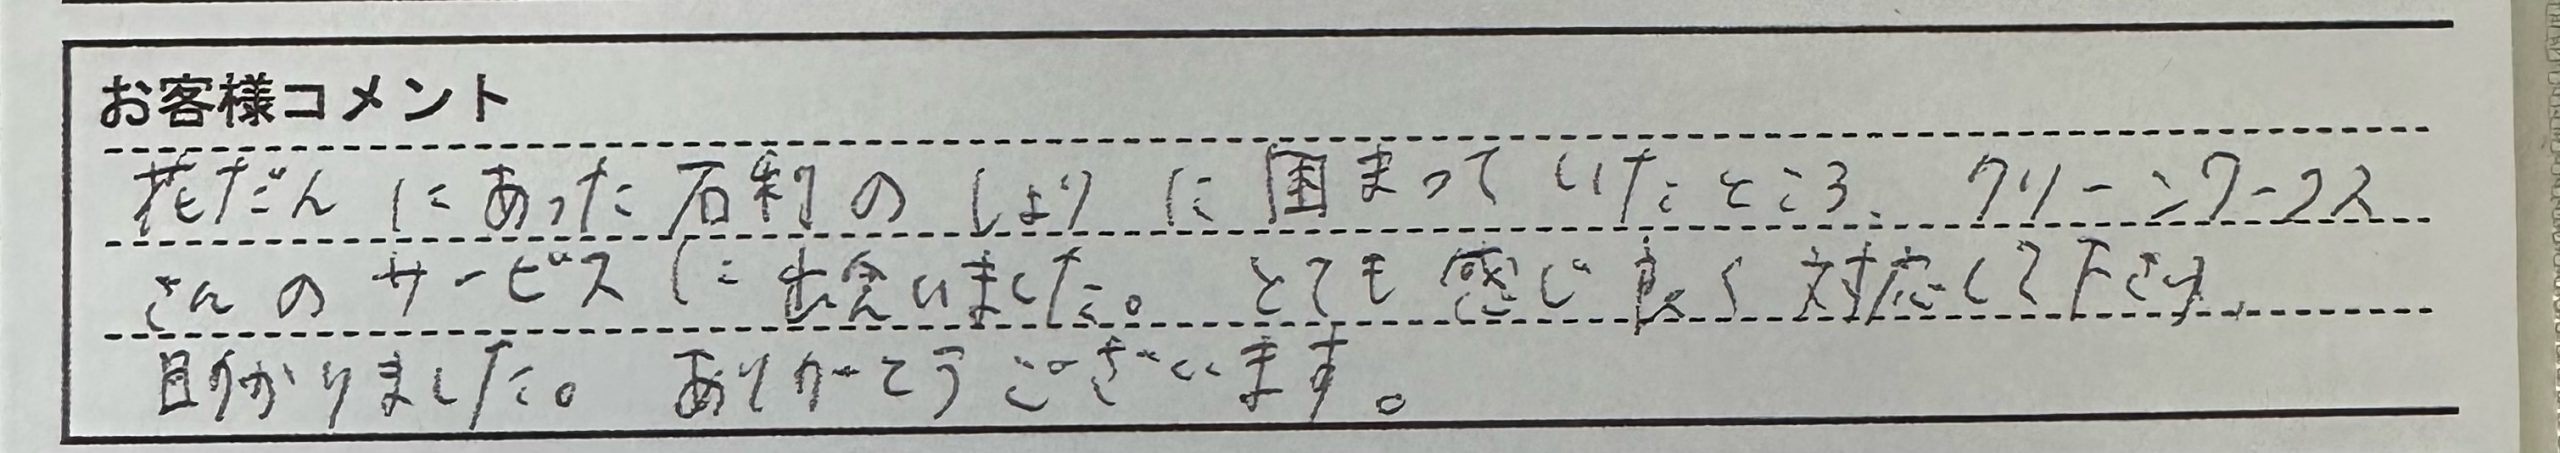 お客様コメント
花だんにあった石利のしょりに困まっていたところ、クリーンワークス
さんのサービスに出会いました。とても感じ良く対応して下さり、
助かりました。ありがとうございます。